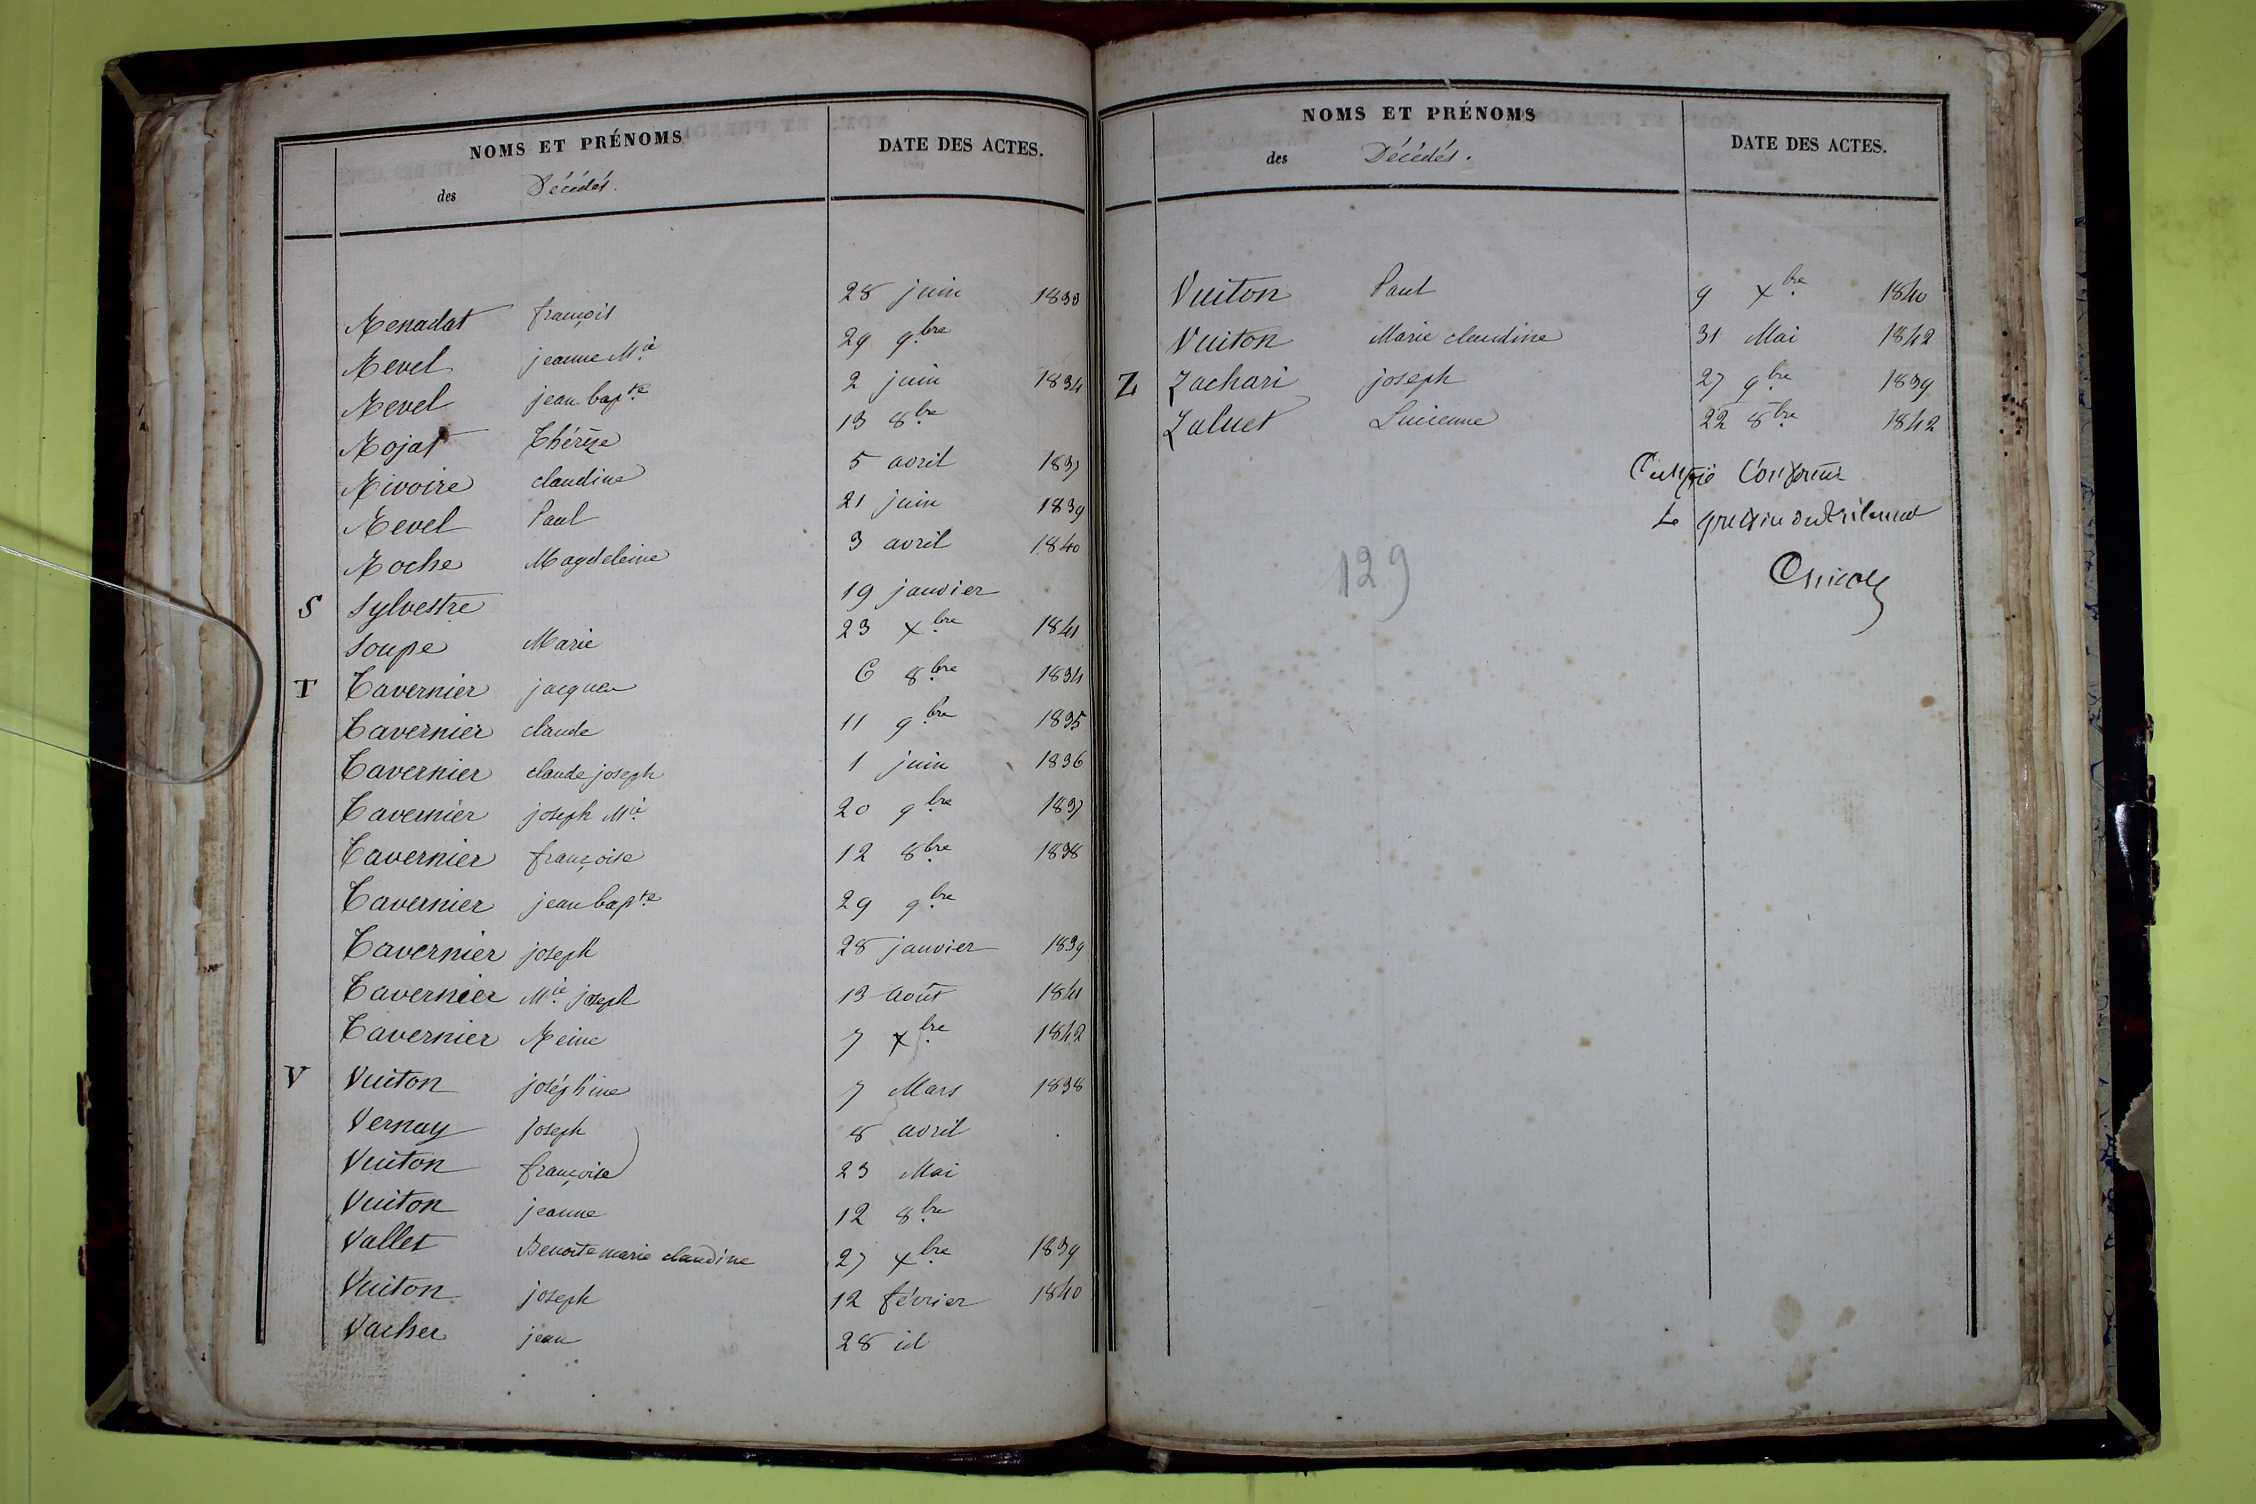 NOMS ET PRÉNOMS DATE DES ACTES.
des Décédés.
Renadat françois 28 juin 1833
Revel jeanne Mie 29 9bre
Revel jean bapte 2 juin 1834
Rojat Thérèze 13 8bre
Rivoire claudine 5 avril 1837
Revel Paul 21 juin 1839
Roche Magdeleine 3 avril 1840
S Sylvestre 19 janvier
Soupe Marie 23 xbre 1841
T Tavernier jacques 6 8bre 1834
Tavernier claude 11 9bre 1835
Tavernier claude joseph 1 juin 1836
Tavernier joseph Mie 20 9bre 1837
Tavernier françoise 12 8bre 1838
Tavernier jean bapte 29 9bre
Tavernier joseph 28 janvier 1839
Tavernier Mie joseph 13 août 1841
Tavernier Reine 7 xbre 1842
V Vuiton joséphine 7 Mars 1838
Vernay joseph 8 avril
Vuiton françoise 23 Mai
Vuiton jeanne 12 8bre
Vallet Benoîte marie claudine 27 xbre 1839
Vuiton joseph 12 février 1840
Vacher jean 28 id
NOMS ET PRÉNOMS DATE DES ACTES.
des Décédés.
Vuiton Paul 9 xbre 1840
Vuiton Marie claudine 31 Mai 1842
Z Zachari joseph 27 9bre 1839
Zaluet Lucienne 22 8bre 1842
Le
129